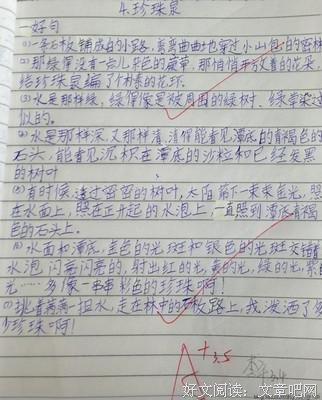 4.珍珠泉
好句
(1)一条石板铺成的小路,弯弯曲曲地穿过小山包的密林
(2)那绿得没有一点儿杂色的蕨草,那悄悄开放着的花朵,
给珍珠泉编了个朴素的花环.
(3)水是那样绿,绿得像是被周围的绿树、绿草染过
似的。
(4)水是那样深,又那样清,清得能看见潭底的青褐色的
石头,能看见沉积在潭底的沙粒和已经发黑
的树叶
(5)有时候,透过密密的树叶,太阳筛下一束束金光,照
在水面上,照在正升起的水泡上,一直照到潭底青褐
色的石头上。
(6)水面和潭底,金色的光斑和银色的光斑交错着
水泡闪亮闪亮的,射出红的光,黄的光,绿的光,紫
光……多像一串串彩色的珍珠啊!
(7)挑着满满一担水,走在林中的石板路上,我泼洒了
少珍珠啊!
A+
3.5
好文阅读:文章吧网